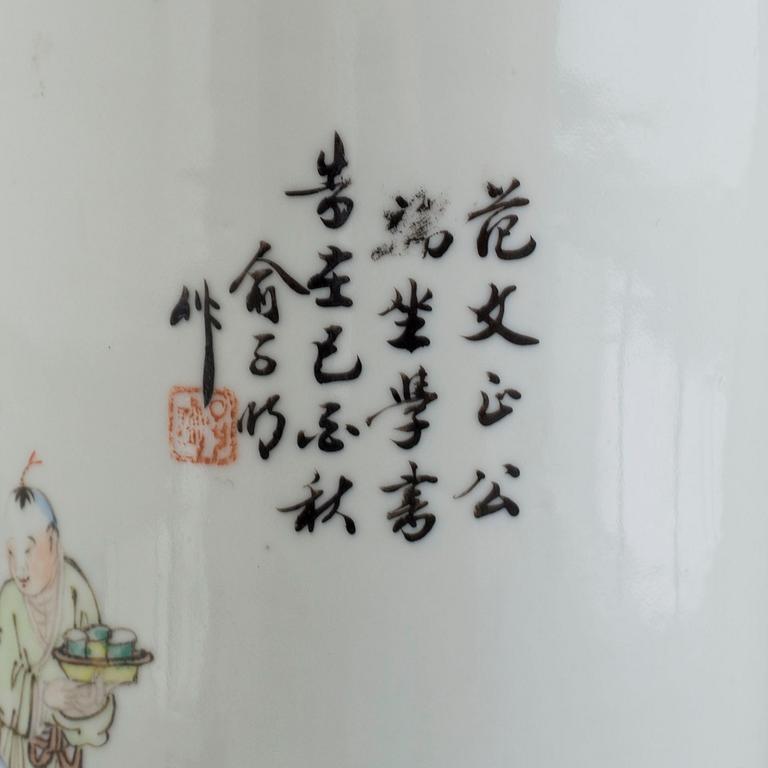 范文正公
坐學書
旹在己酉秋
俞子明
作